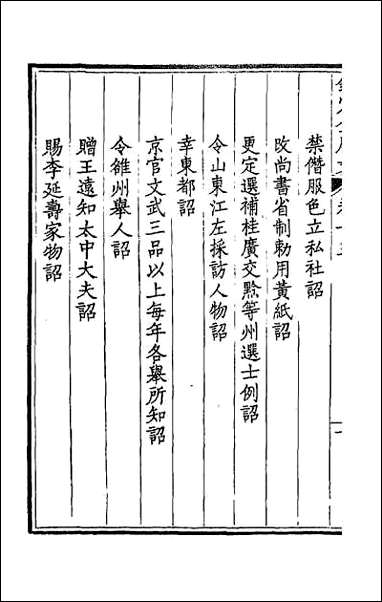 禁僭服色立私社詔
改尚書省制勅用黄紙詔
更定選補桂廣交黔等州選士例詔
令山東江左採訪人物詔
幸東都詔
京官文武三品以上每年各舉所知詔
令雍州舉人詔
贈王遠知太中大夫詔
賜李延壽家物詔